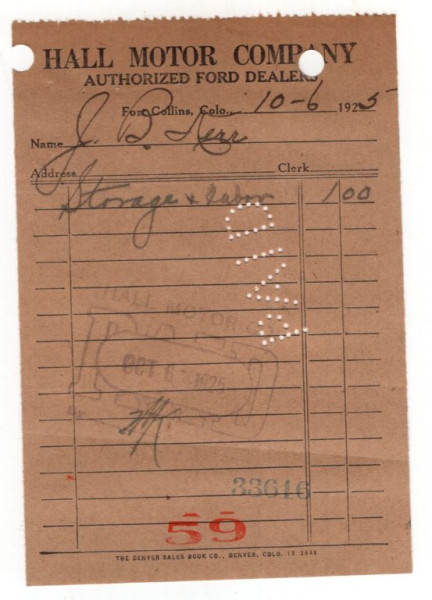 HALL MOTOR COMPANY
AUTHORIZED FORD DEALERS
Fort Collins, Colo., 10-6 1925
Name J. B. Kerr
Address Clerk
Storage & Labor 1 00
PAID
HALL MOTOR CO.
PAID
OCT 6 1925
33616
59
THE DENVER SALES BOOK CO., DENVER, COLO.